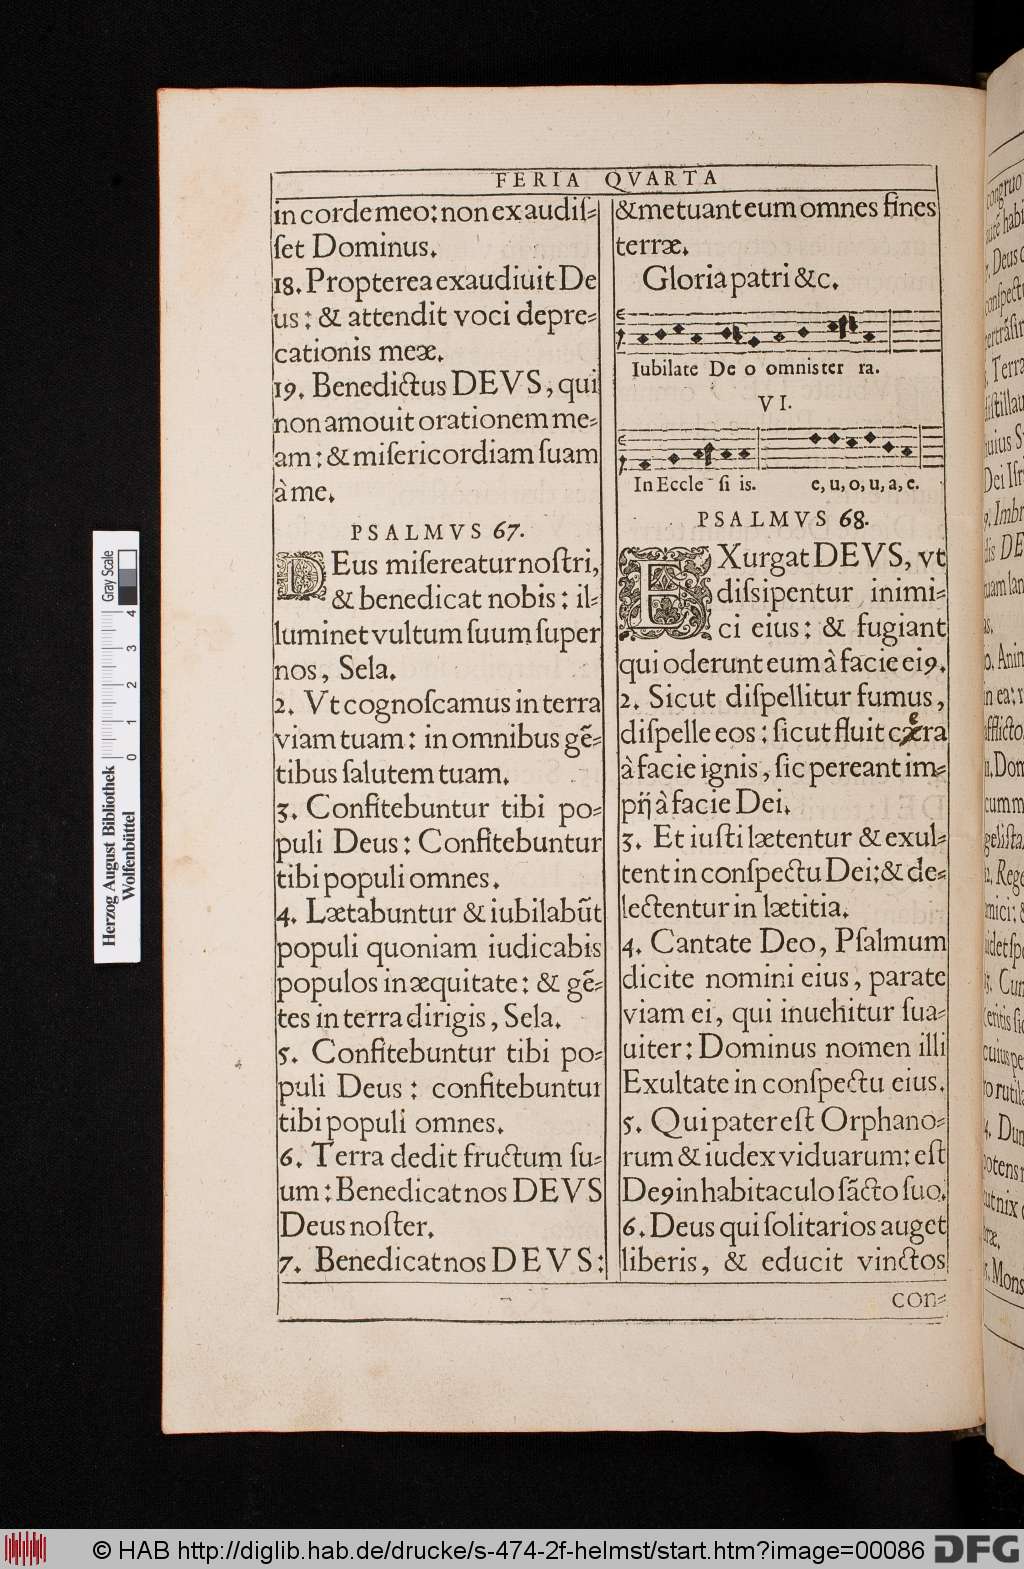 FERIA QVARTA
in corde meo: non exaudiſ⸗
ſet Dominus.
18. Propterea exaudiuit De
us: & attendit voci depre⸗
cationis meæ.
19. Benedictus DEVS, qui
non amouit orationem me⸗
am: & miſericordiam ſuam
à me.
PSALMVS 67.
DEus miſereatur noſtri,
& benedicat nobis: il⸗
luminet vultum ſuum ſuper
nos, Sela.
2. Vt cognoſcamus in terra
viam tuam: in omnibus gẽ⸗
tibus ſalutem tuam.
3. Confitebuntur tibi po⸗
puli Deus: Confitebuntur
tibi populi omnes.
4. Lætabuntur & iubilabũt
populi quoniam iudicabis
populos in æquitate: & gẽ⸗
tes in terra dirigis, Sela.
5. Confitebuntur tibi po⸗
puli Deus: confitebuntur
tibi populi omnes.
6. Terra dedit fructum ſu⸗
um: Benedicat nos DEVS
Deus noſter.
7. Benedicat nos DEVS:
& metuant eum omnes fines
terræ.
Gloria patri &c.
Iubilate De o omnis ter ra.
VI.
In Eccle - ſi is. e, u, o, u, a, e.
PSALMVS 68.
EXurgat DEVS, vt
diſsipentur inimi⸗
ci eius: & fugiant
qui oderunt eum à facie eiꝰ.
2. Sicut diſpellitur fumus,
diſpelle eos: ſicut fluit cera
à facie ignis, ſic pereant im⸗
pij à facie Dei.
3. Et iuſti lætentur & exul⸗
tent in conſpectu Dei: & de⸗
lectentur in lætitia.
4. Cantate Deo, Pſalmum
dicite nomini eius, parate
viam ei, qui inuehitur ſua⸗
uiter: Dominus nomen illi
Exultate in conſpectu eius.
5. Qui pater eſt Orphano⸗
rum & iudex viduarum: eſt
Deꝰ in habitaculo ſãcto ſuo.
6. Deus qui ſolitarios auget
liberis, & educit vinctos
con⸗
Herzog August Bibliothek
Wolfenbüttel
0 1 2 3 4
Gray Scale
© HAB http://diglib.hab.de/drucke/s-474-2f-helmst/start.htm?image=00086
DFG